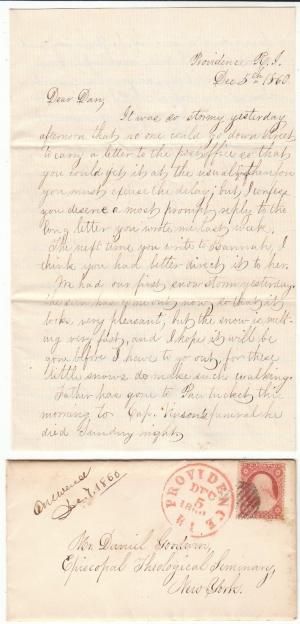 Providence R.I.
Dec 5th 1860
Dear Dan,
It was so stormy yesterday
afternoon that no one could go down street
to carry a letter to the post office so that
you could get it at the usual time
you must excuse the delay; but I confess
you deserve a most prompt reply to the
long letter you wrote me last week.
The next time you write to Hannah, I
think you had better direct it to her.
We had our first snow storm yesterday.
The sun has come out now so that it
looks very pleasant, but the snow is melt-
ing very fast, and I hope it will be
gone before I have to go out, for these
little snows do make such walking.
Father has gone to Pawtucket this
morning to Cap. funeral he
died Sunday night
Answered
Dec. 7. 1860
PROVIDENCE
DEC
5
1860
R.I.
Mr. Daniel Goodwin,
Episcopal Theological Seminary,
New York.